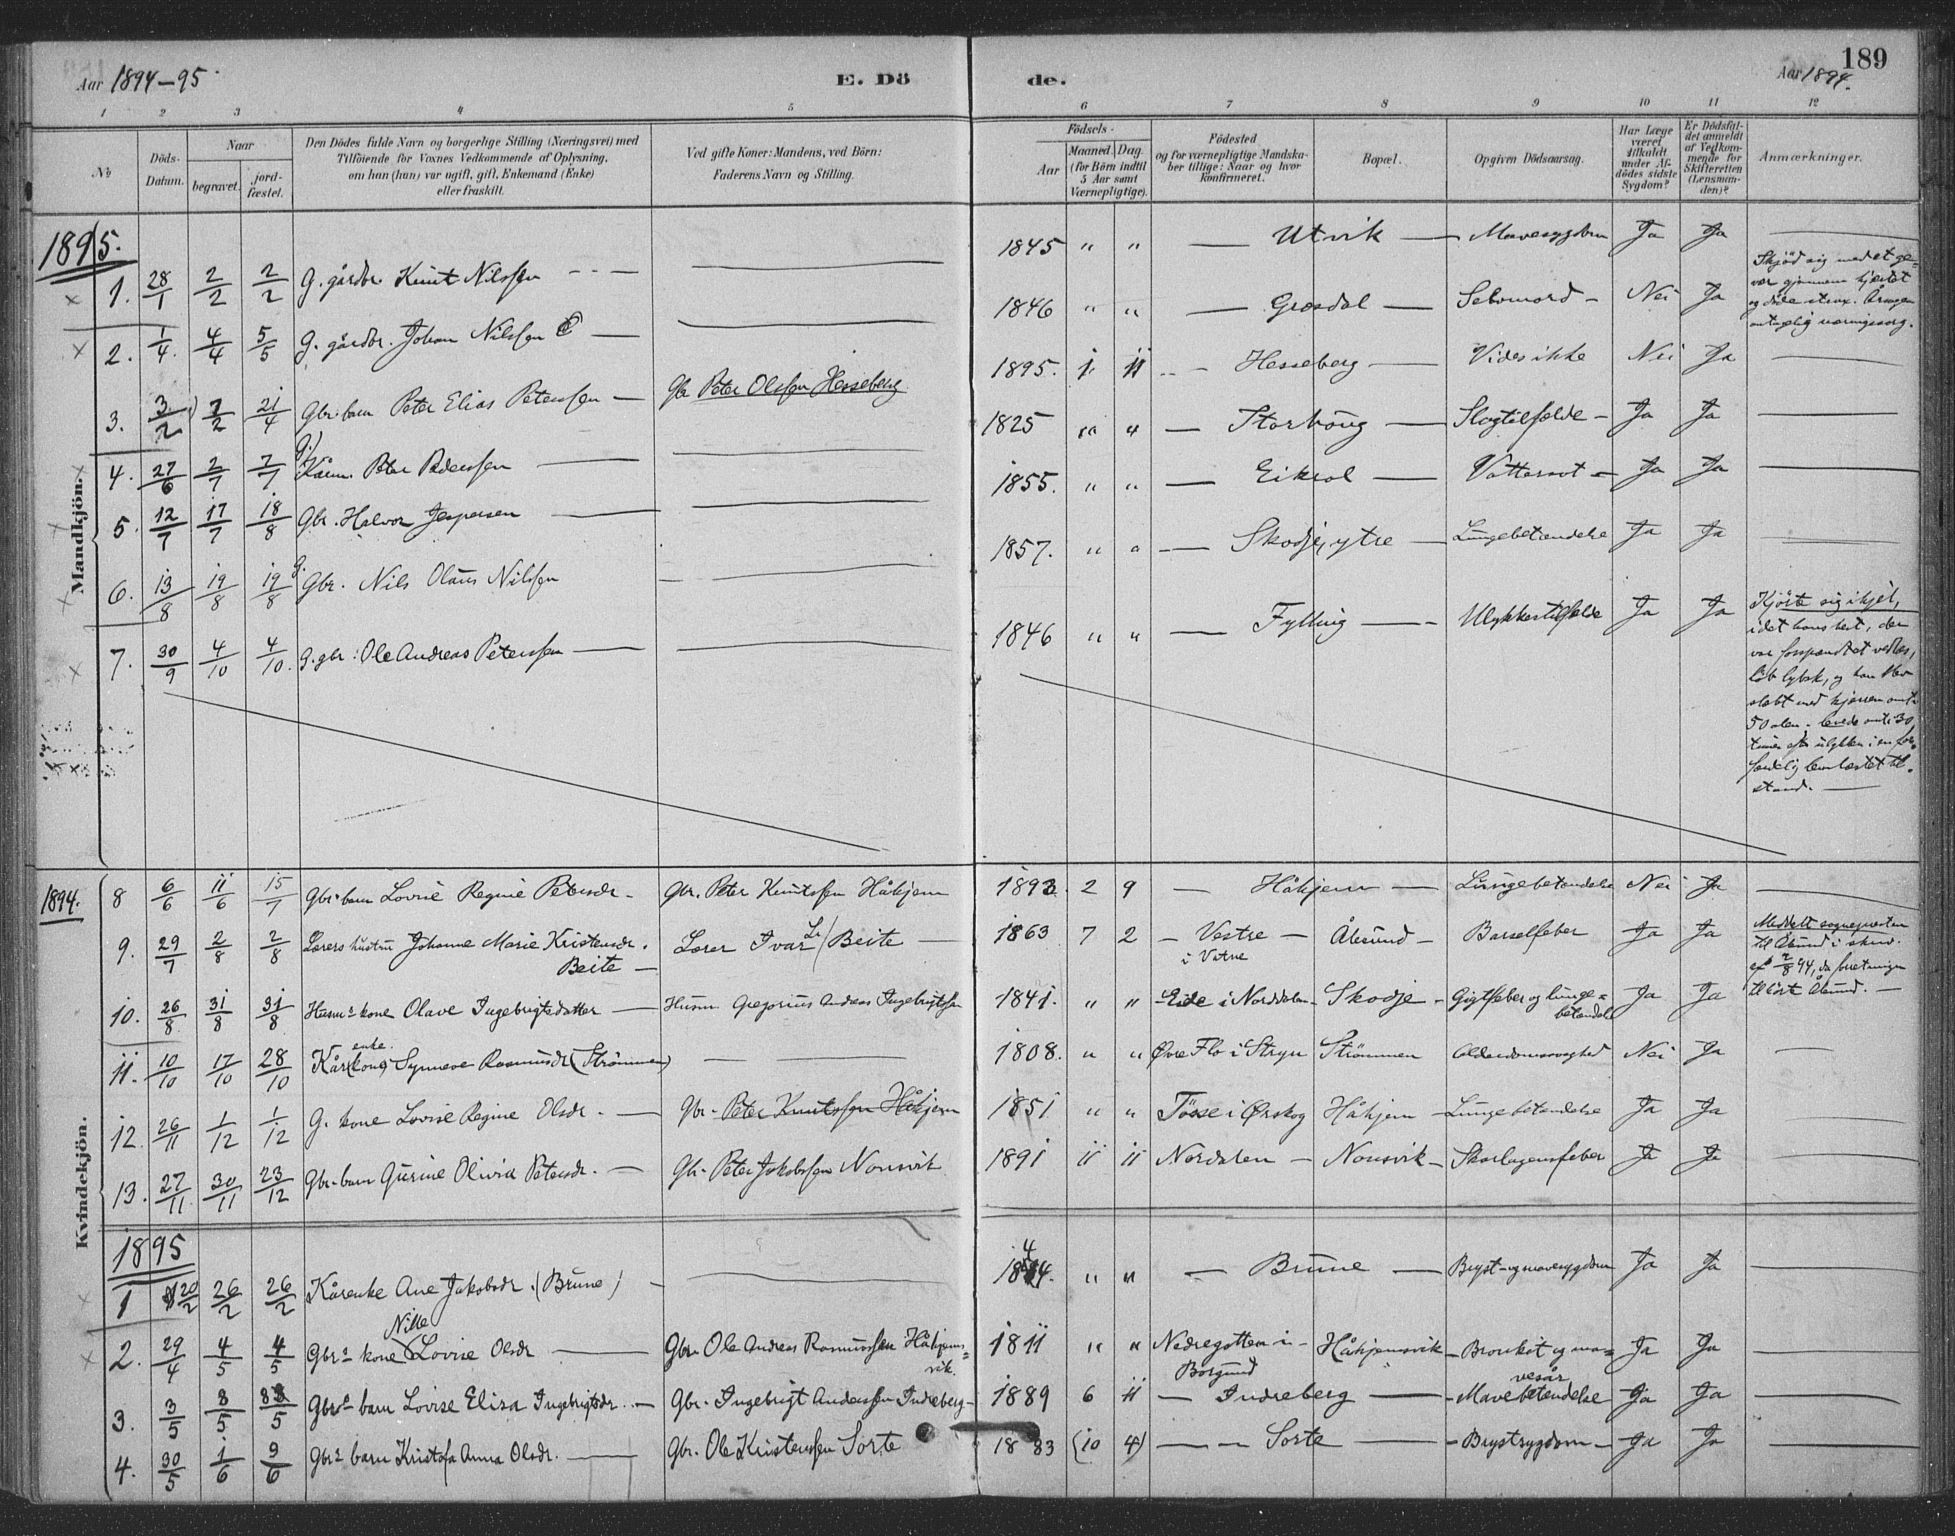 Aar 1894-95. E. Dö de. Aar 1894. 189
1 2 3 4 5 6 7 8 9 10 11 12
No Döds-Datum. Naar begravet. jord-fæstet. Den Dödes fulde Navn og borgerlige Stilling (Næringsvei) med Tilföiende for Voxnes Vedkommende af Oplysning, om han (hun) var ugift, gift, Enkemand (Enke) eller fraskilt. Ved gifte Koner: Mandens, ved Börn: Faderens Navn og Stilling. Födsels- Aar Maaned. Dag. (for Börn indtil 5 Aar samt Værnepligtige). Födested og for værnepligtige Mandska-ber tillige: Naar og hvor konfirmeret. Bopæl. Opgiven Dödsaarsag. Har Læge været tilkaldt under Af-dödes sidste Sygdom? Er Dödsfal-det anmeldt af Vedkom-mende for Skifteretten (Lensman-den)? Anmærkninger.
Mandkjön.
1895.
1. 28/1 2/2 2/2 G. gårdbr. Knut Nilssen 1845 " " Utvik Mavesygdom Ja Ja
2. 1/4. 4/4 5/5 G. gårdbr. Johan Nilssen 1846 " " Grosdal Selvmord Nei Ja Skjöd sig med et ge=
vær gjennem hjertet
og döde strax. Årsagen
antagelig næringssorg.
3. 3/2 7/2 21/4 Gbr. barn Peter Elias Peterssen Gbr Peter Olssen Hesseberg 1895. 1. 11 Hesseberg Vides ikke Nei Ja
4. 27/6 2/7 7/7 Kårm. Peter Pederssen 1825 " " Storhoug Slagtilfælde Ja Ja
5. 12/7 17/7 18/8 Gbr. Halvor Jespersen 1855. " " Eikrol Vattersot Ja Ja
6. 13/8 19/8 19/8 g. Gbr. Nils Olaus Nilssen 1857. " " Skodje, ytre Lungebetændelse Ja Ja
7. 30/9 4/10 4/10. G. gbr: Ole Andreas Peterssen 1846 " " Fylling Ulykkestilfælde Ja Ja Kjörte sig ihjel,
idet hans hest, der
var forspændt et vedlæs,
löb löbsk, og han blev
slæbt med kjærren omtr.
50 alen. levede omtr. 30
timer efter ulykken i en for=
færdelig lemlæstet til=
stand.
Kvindekjön.
1894.
8 6/6 11/6 15/7 Gbr. barn Lovise Regine Petersdr. Gbr. Peter Knutssen Håhjem 1893. 2 9 Håhjem Lungebetændelse Nei Ja
9. 29/7 2/8 2/8 Lærers hustru Johanne Marie Kristensdr. Beite Lærer Ivar Beite 1863 7 2 Vestre i Vatne Ålesund Barselfeber Ja Ja Meddelt sognepresten
til Ålesund i skriv.
af 2/8 94, da forretningen
tilhört Ålesund.
10. 26/8 31/8 31/8 Husm. kone Olave Ingebrigtsdatter Husm Gregorius Andreas Ingebrigtssen 1841. " " Eide i Norddalen Skodje Gigtfeber og lunge=betændelse Ja Ja
11. 10/10 17/10 28/10 Kår(kone) enke. Synneve Rasmusdr (Strömmen) 1808. " " Övre Flo i Stryn Strömmen Alderdomssvaghed Nei Ja
12. 26/11 1/12 1/12 G. kone Lovise Regine Olsdr. Gbr. Peter Knutssen Håhjem 1851 " " Tösse i Ørskog Håhjem Lungebetændelse Ja Ja
13. 27/11. 30/11 23/12 Gbr. barn Gurine Olivia Petersdr. Gbr. Peter Jakobssen Nonsvik 1891 11 11 Nordalen Nonsvik Skarlagensfeber Ja Ja
1895
1 20/2 26/2 26/2 Kårenke Ane Jakobsdr. (Brune) 18 4. " " Brune Bryst- og mavesygdom Ja Ja
2. 29/4 4/5 4/5 Gbrs kone Nille Lovise Olsdr Gbr Ole Andreas Rasmussen Håhjems=vik. 1811 " " Nedregotten i Borgund Håhjemsvik Bronkit og ma=vesår Ja Ja
3. 3/5 8/5 8/5 Gbrs barn Lovise Elisa Ingebrigtsdr. Gbr. Ingebrigt Anderssen Indreberg 1889 6 11 Indreberg Mavebetændelse Ja Ja
4. 30/5 1/6 9/6 Gbrs barn Kristofa Anna Olsdr. Gbr. Ole Kristenssen Sorte 1883 (10 4) Sorte Brystsygdom Ja Ja